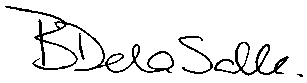 B Dela Salle.